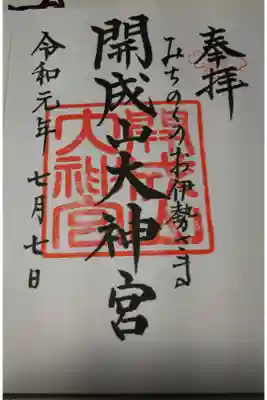 奉拝
みちのくのお伊勢さま
開成山大神宮
令和元年 七月七日
開成山
大神宮